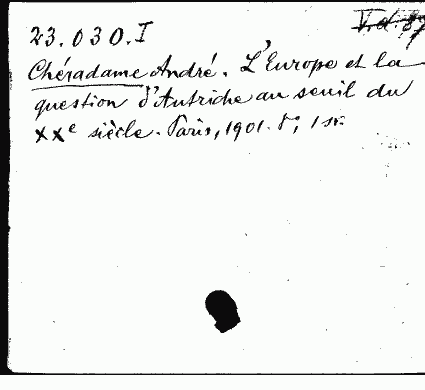 V.d.87
23.030.I
Chéradame André. L'Europe et la
question d'Autriche au seuil du
XXe siècle. Paris, 1901. 8°,